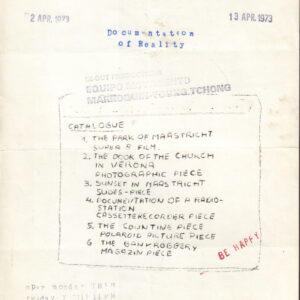 2 APR. 1973
13 APR. 1973
Documentation
of Reality
EQUIPO MOVIMENTO
CATALOGUE:
1. THE PARK OF MAASTRICHT
SUPER 8 FILM.
2. THE DOOK OF THE CHURCH
IN VERONA
PHOTOGRAPHIC PIECE
3. SUNSET IN MAASTRICHT
SLIDES-PIECE
4. DOCUMENTATION OF A RADIO-
STATION
CASSETTERECORDER PIECE
5. THE COUNTING PIECE
POLAROID PICTURE PIECE
6. THE BANKROBBERY
MAGAZIN PIECE
BE HAPPY